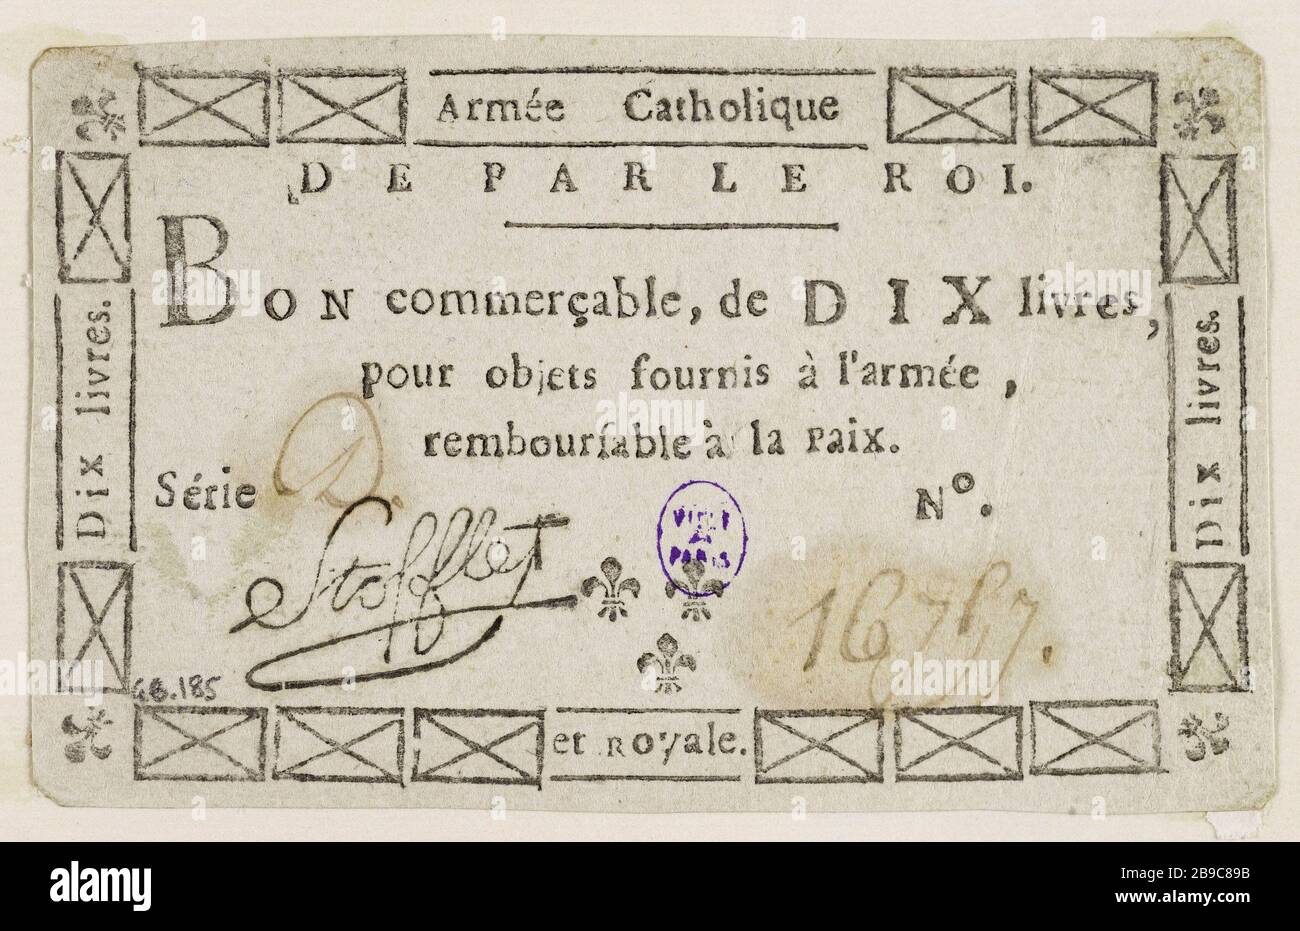 Armée Catholique
DE PAR LE ROI.
BON commerçable, de DIX livres,
pour objets fournis à l'armée,
remboursable à la Paix.
Série D. N°.
Stofflet
16757.
VILLE
DE
PARIS
Dix livres.
Dix livres.
GB.185
et Royale.
alamy
Image ID: 2B9C89B
www.alamy.com